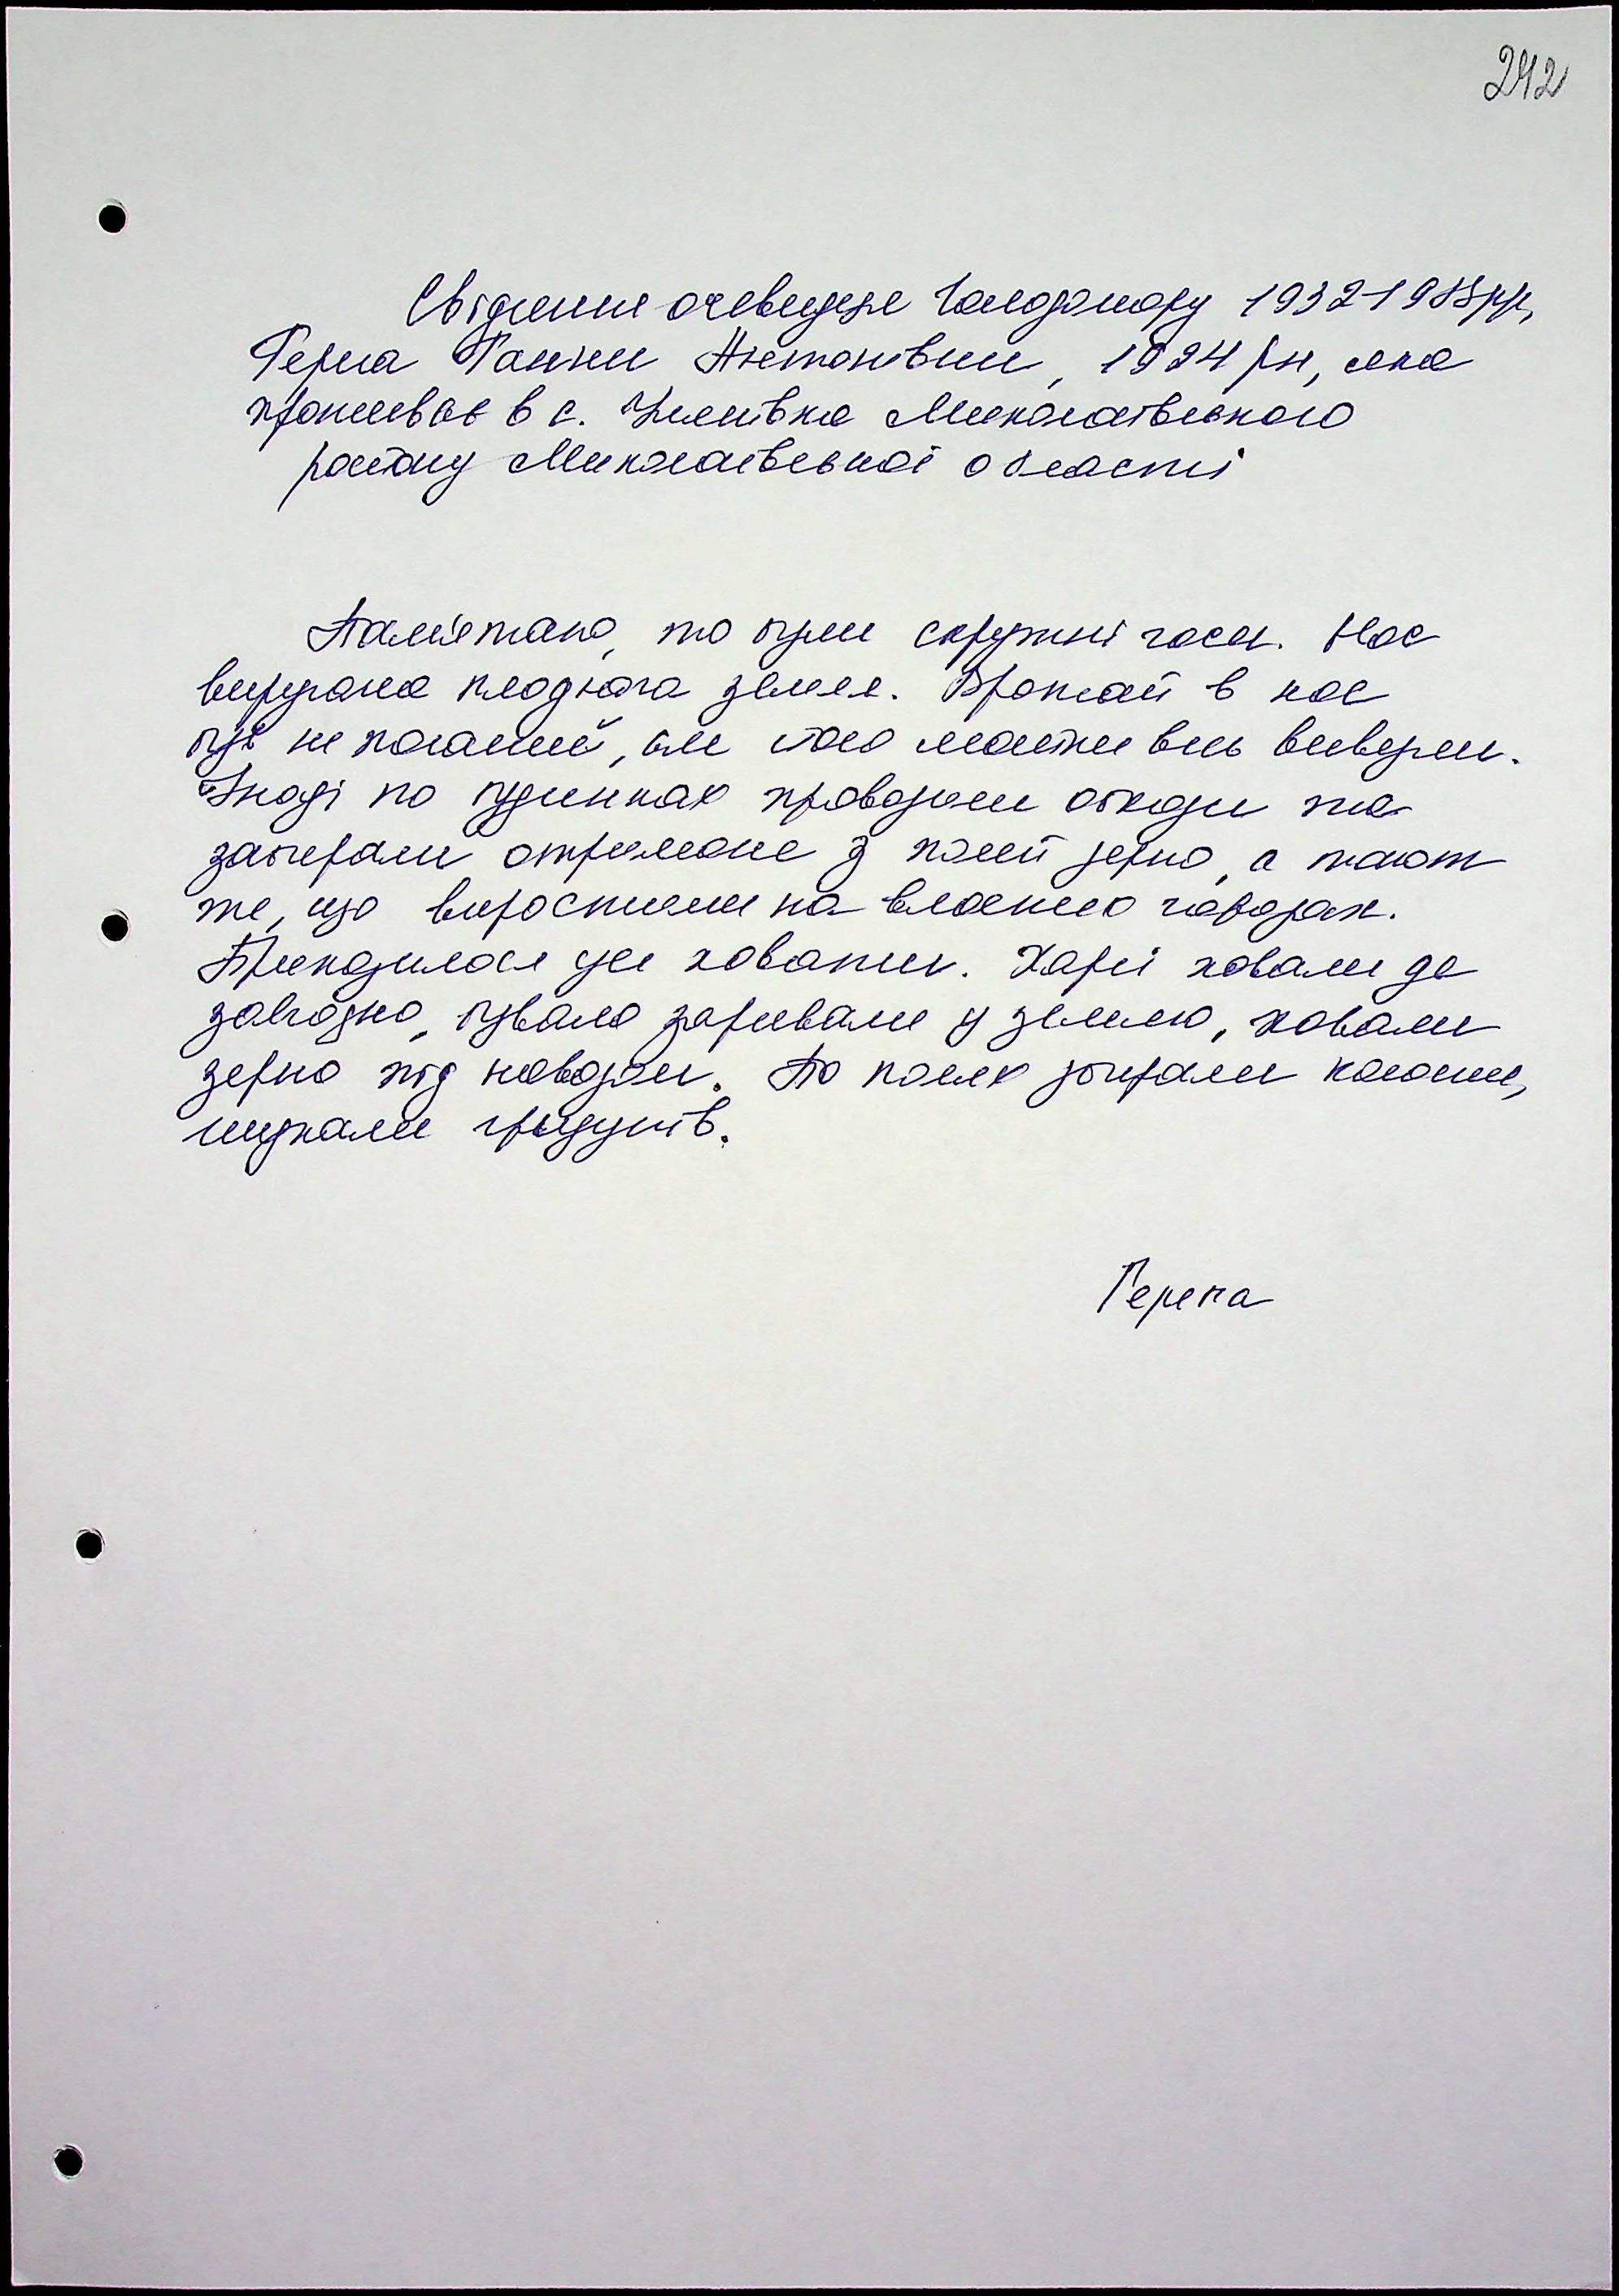 242
Свідчення очевидця Голодомору 1932-1933рр,
Ганни Антонівни, 1924 рн, яка
проживає в с. Миколаївського
району Миколаївської області
Пам'ятаю, то були скрутні часи. Нас
виручала плодюча земля. Врожай в нас
був не поганий, але його майже весь вивезли.
Іноді по будинках проводили обходи та
забирали отримане з полей зерно, а також
те, що виростили на власних городах.
Приходилося це ховати. Харчі ховали де
завгодно, бувало заривали у землю, ховали
зерно під навозом. По полях збирали колоски,
шукали